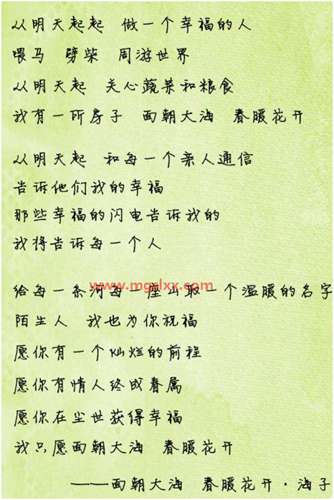 从明天起起 做一个幸福的人
喂马 劈柴 周游世界
从明天起 关心蔬菜和粮食
我有一所房子 面朝大海 春暖花开
从明天起 和每一个亲人通信
告诉他们我的幸福
那些幸福的闪电告诉我的
我将告诉每一个人
www.mgzlxx.com
给每一条河每一座山取一个温暖的名字
陌生人 我也为你祝福
愿你有一个灿烂的前程
愿你有情人终成眷属
愿你在尘世获得幸福
我只愿面朝大海 春暖花开
——面朝大海 春暖花开·海子